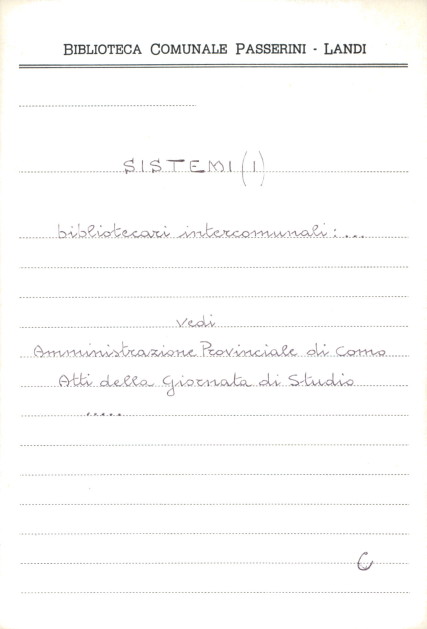 BIBLIOTECA COMUNALE PASSERINI - LANDI
SISTEMI (I)
bibliotecari intercomunali: ...
vedi
Amministrazione Provinciale di Como
Atti della Giornata di Studio
.....
C